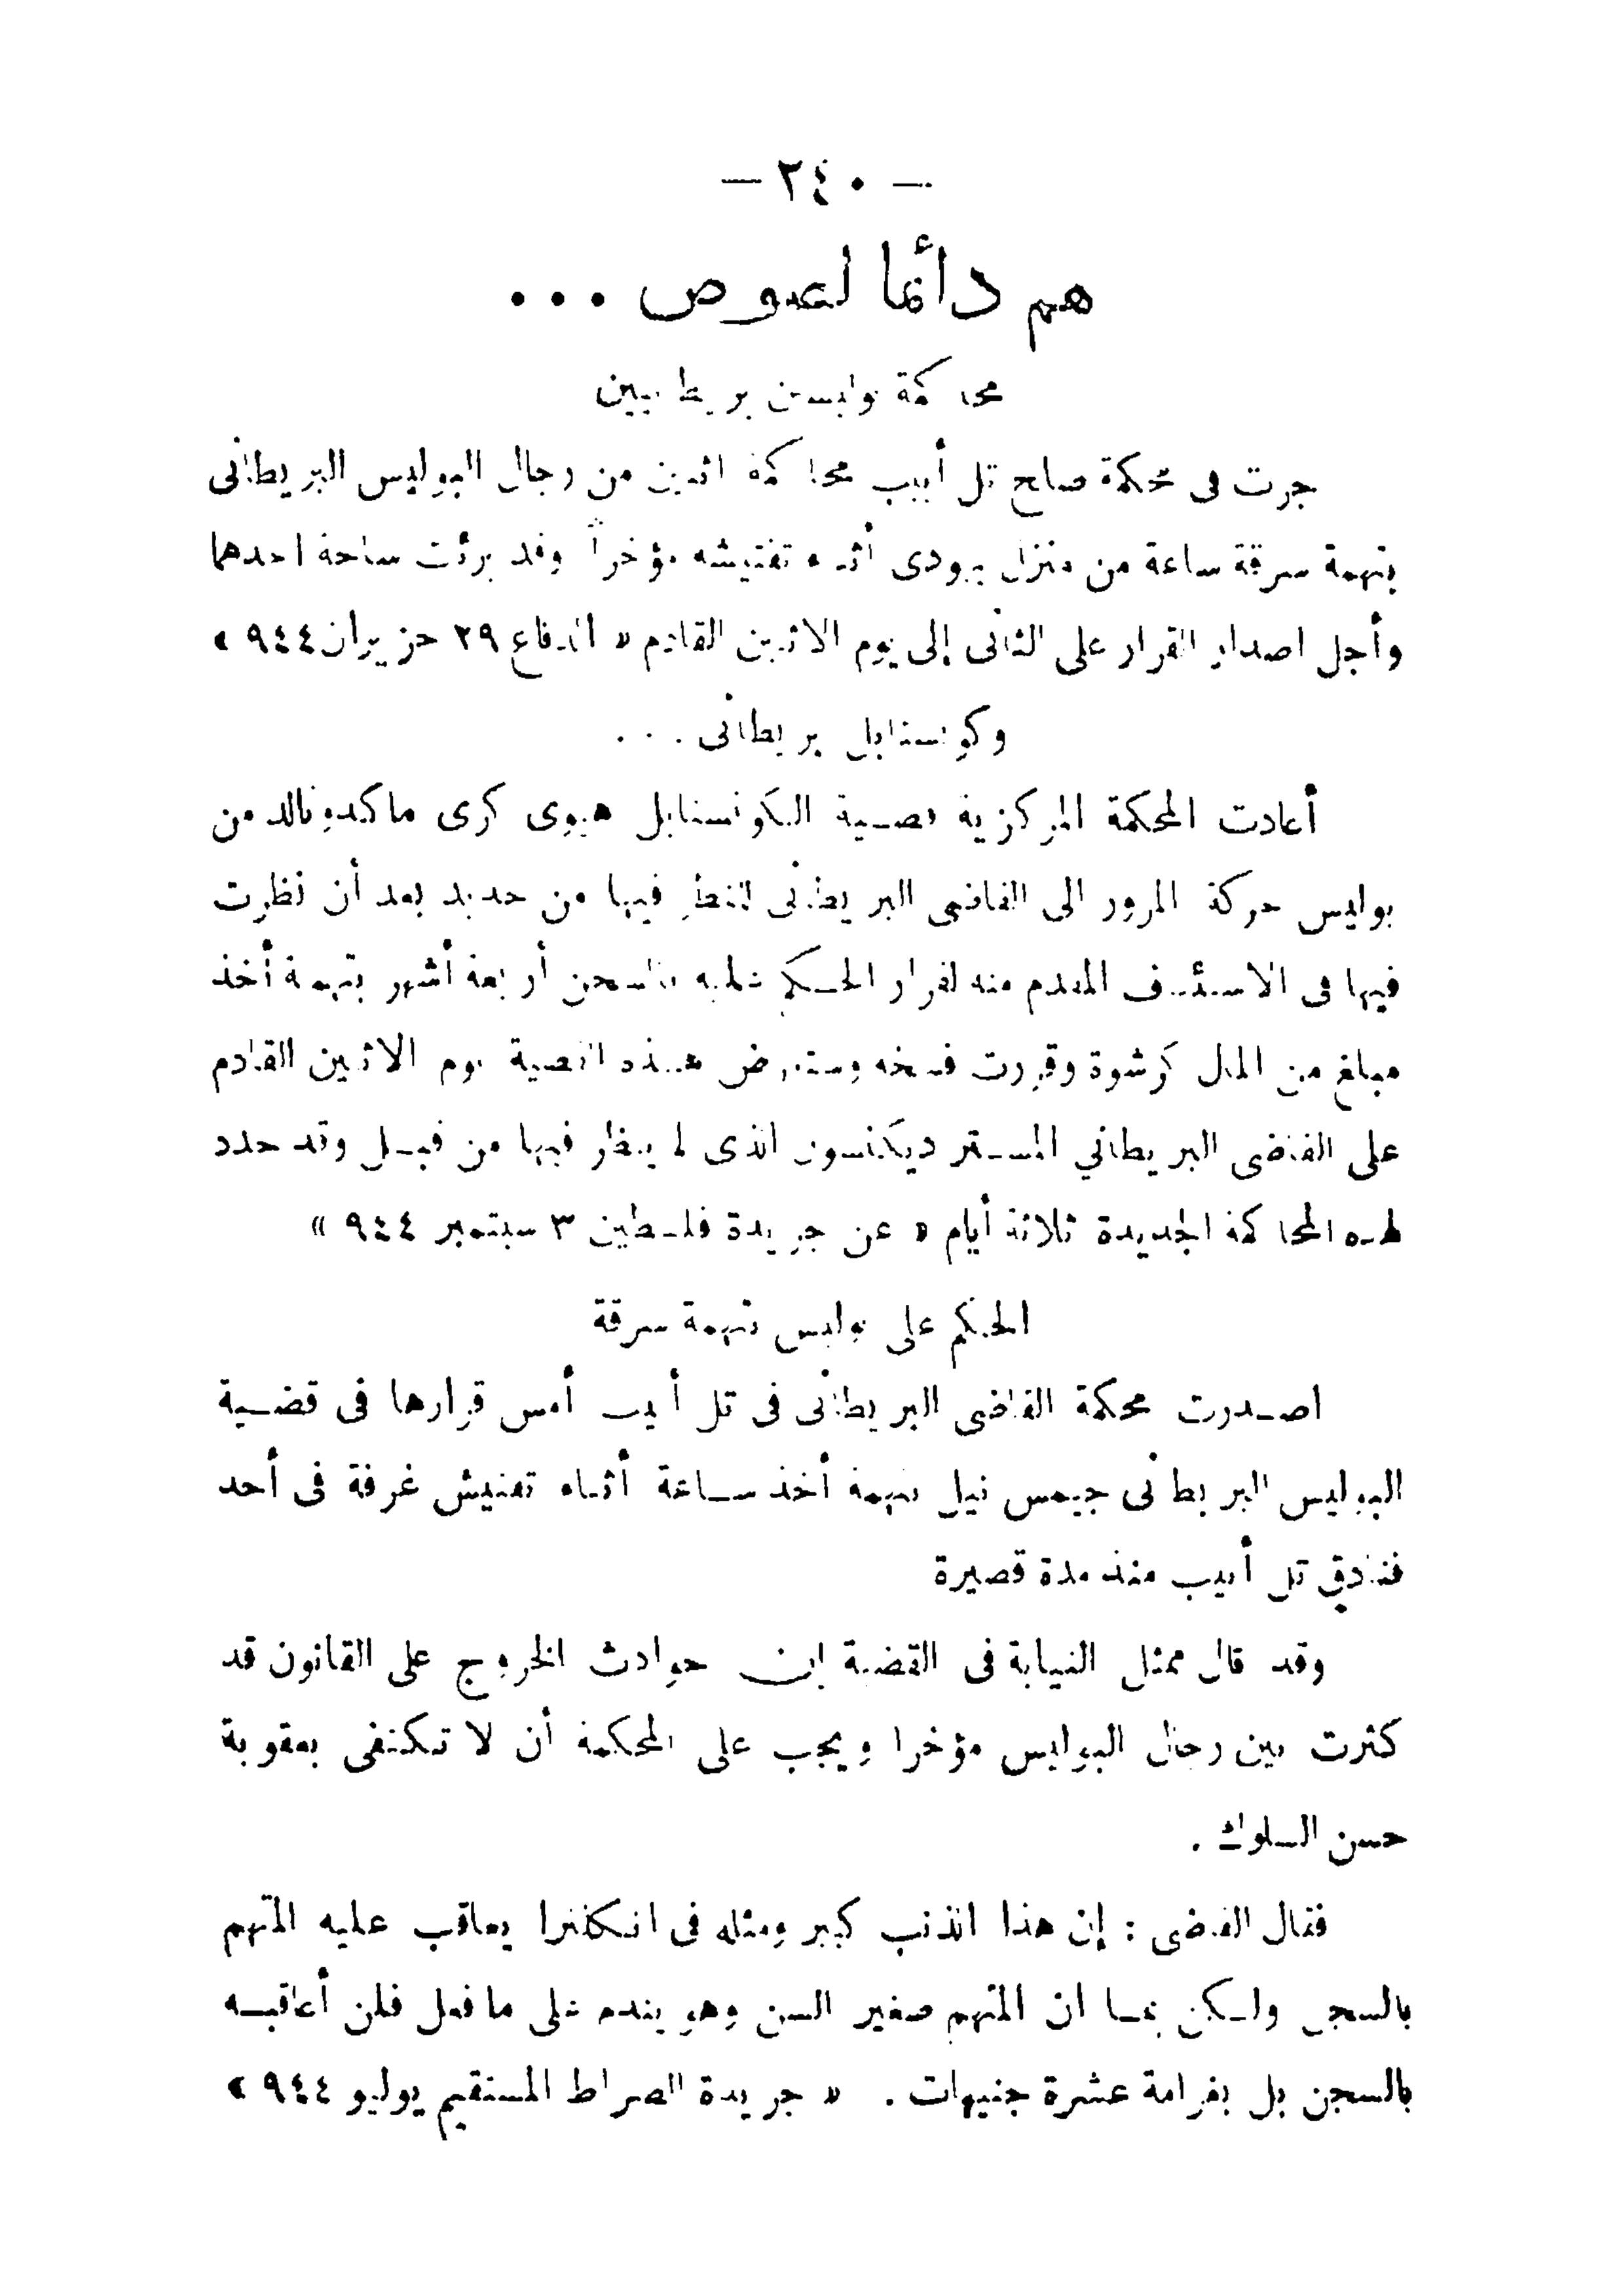 — ٢٤٠ —
هم دائما لصوص ...
محاكمة بوليسين بريطانيين
جرت فى محكمة صلح تل أبيب محاكمة اثنين من رجال البوليس البريطانى
بتهمة سرقة ساعة من منزل يهودى أثناء تفتيشه مؤخراً وقد برئت ساحة احدهما
وأجل اصدار القرار على الثانى إلى يوم الاثنين القادم « الدفاع ٢٩ حزيران ٩٤٤ »
وكونستابل بريطانى ...
أعادت المحكمة المركزية قضية الكونستابل هيوى كرى ماكدونالد من
بوليس حركة المرور الى القاضى البريطانى للنظر فيها من جديد بعد أن نظرت
فيها فى الاستئناف المقدم منه لقرار الحكم عليه بالسجن أربعة أشهر بتهمة أخذ
مبلغ من المال كرشوة وقررت فسخه وستعرض هذه القضية يوم الاثنين القادم
على القاضى البريطاني المستر ديكنسون الذى لم ينظر فيها من قبل وقد حدد
لهذه المحاكمة الجديدة ثلاثة أيام « عن جريدة فلسطين ٣ سبتمبر ٩٤٤ »
الحكم على بوليس بتهمة سرقة
اصدرت محكمة القاضى البريطانى فى تل أبيب أمس قرارها فى قضية
البوليس البريطانى جيمس نيل بتهمة أخذ ساعة أثناء تفتيش غرفة فى أحد
فنادق تل أبيب منذ مدة قصيرة
وقد قال ممثل النيابة فى القضية إن حوادث الخروج على القانون قد
كثرت بين رجال البوليس مؤخرا ويجب على المحكمة أن لا تكتفى بعقوبة
حسن السلوك .
فقال القاضى : إن هذا الذنب كبير ومثله فى انكلترا يعاقب عليه المتهم
بالسجن ولكن بما ان المتهم صغير السن وهو يندم على ما فعل فلن أعاقبه
بالسجن بل بغرامة عشرة جنيهات . « جريدة الصراط المستقيم يوليو ٩٤٤ »